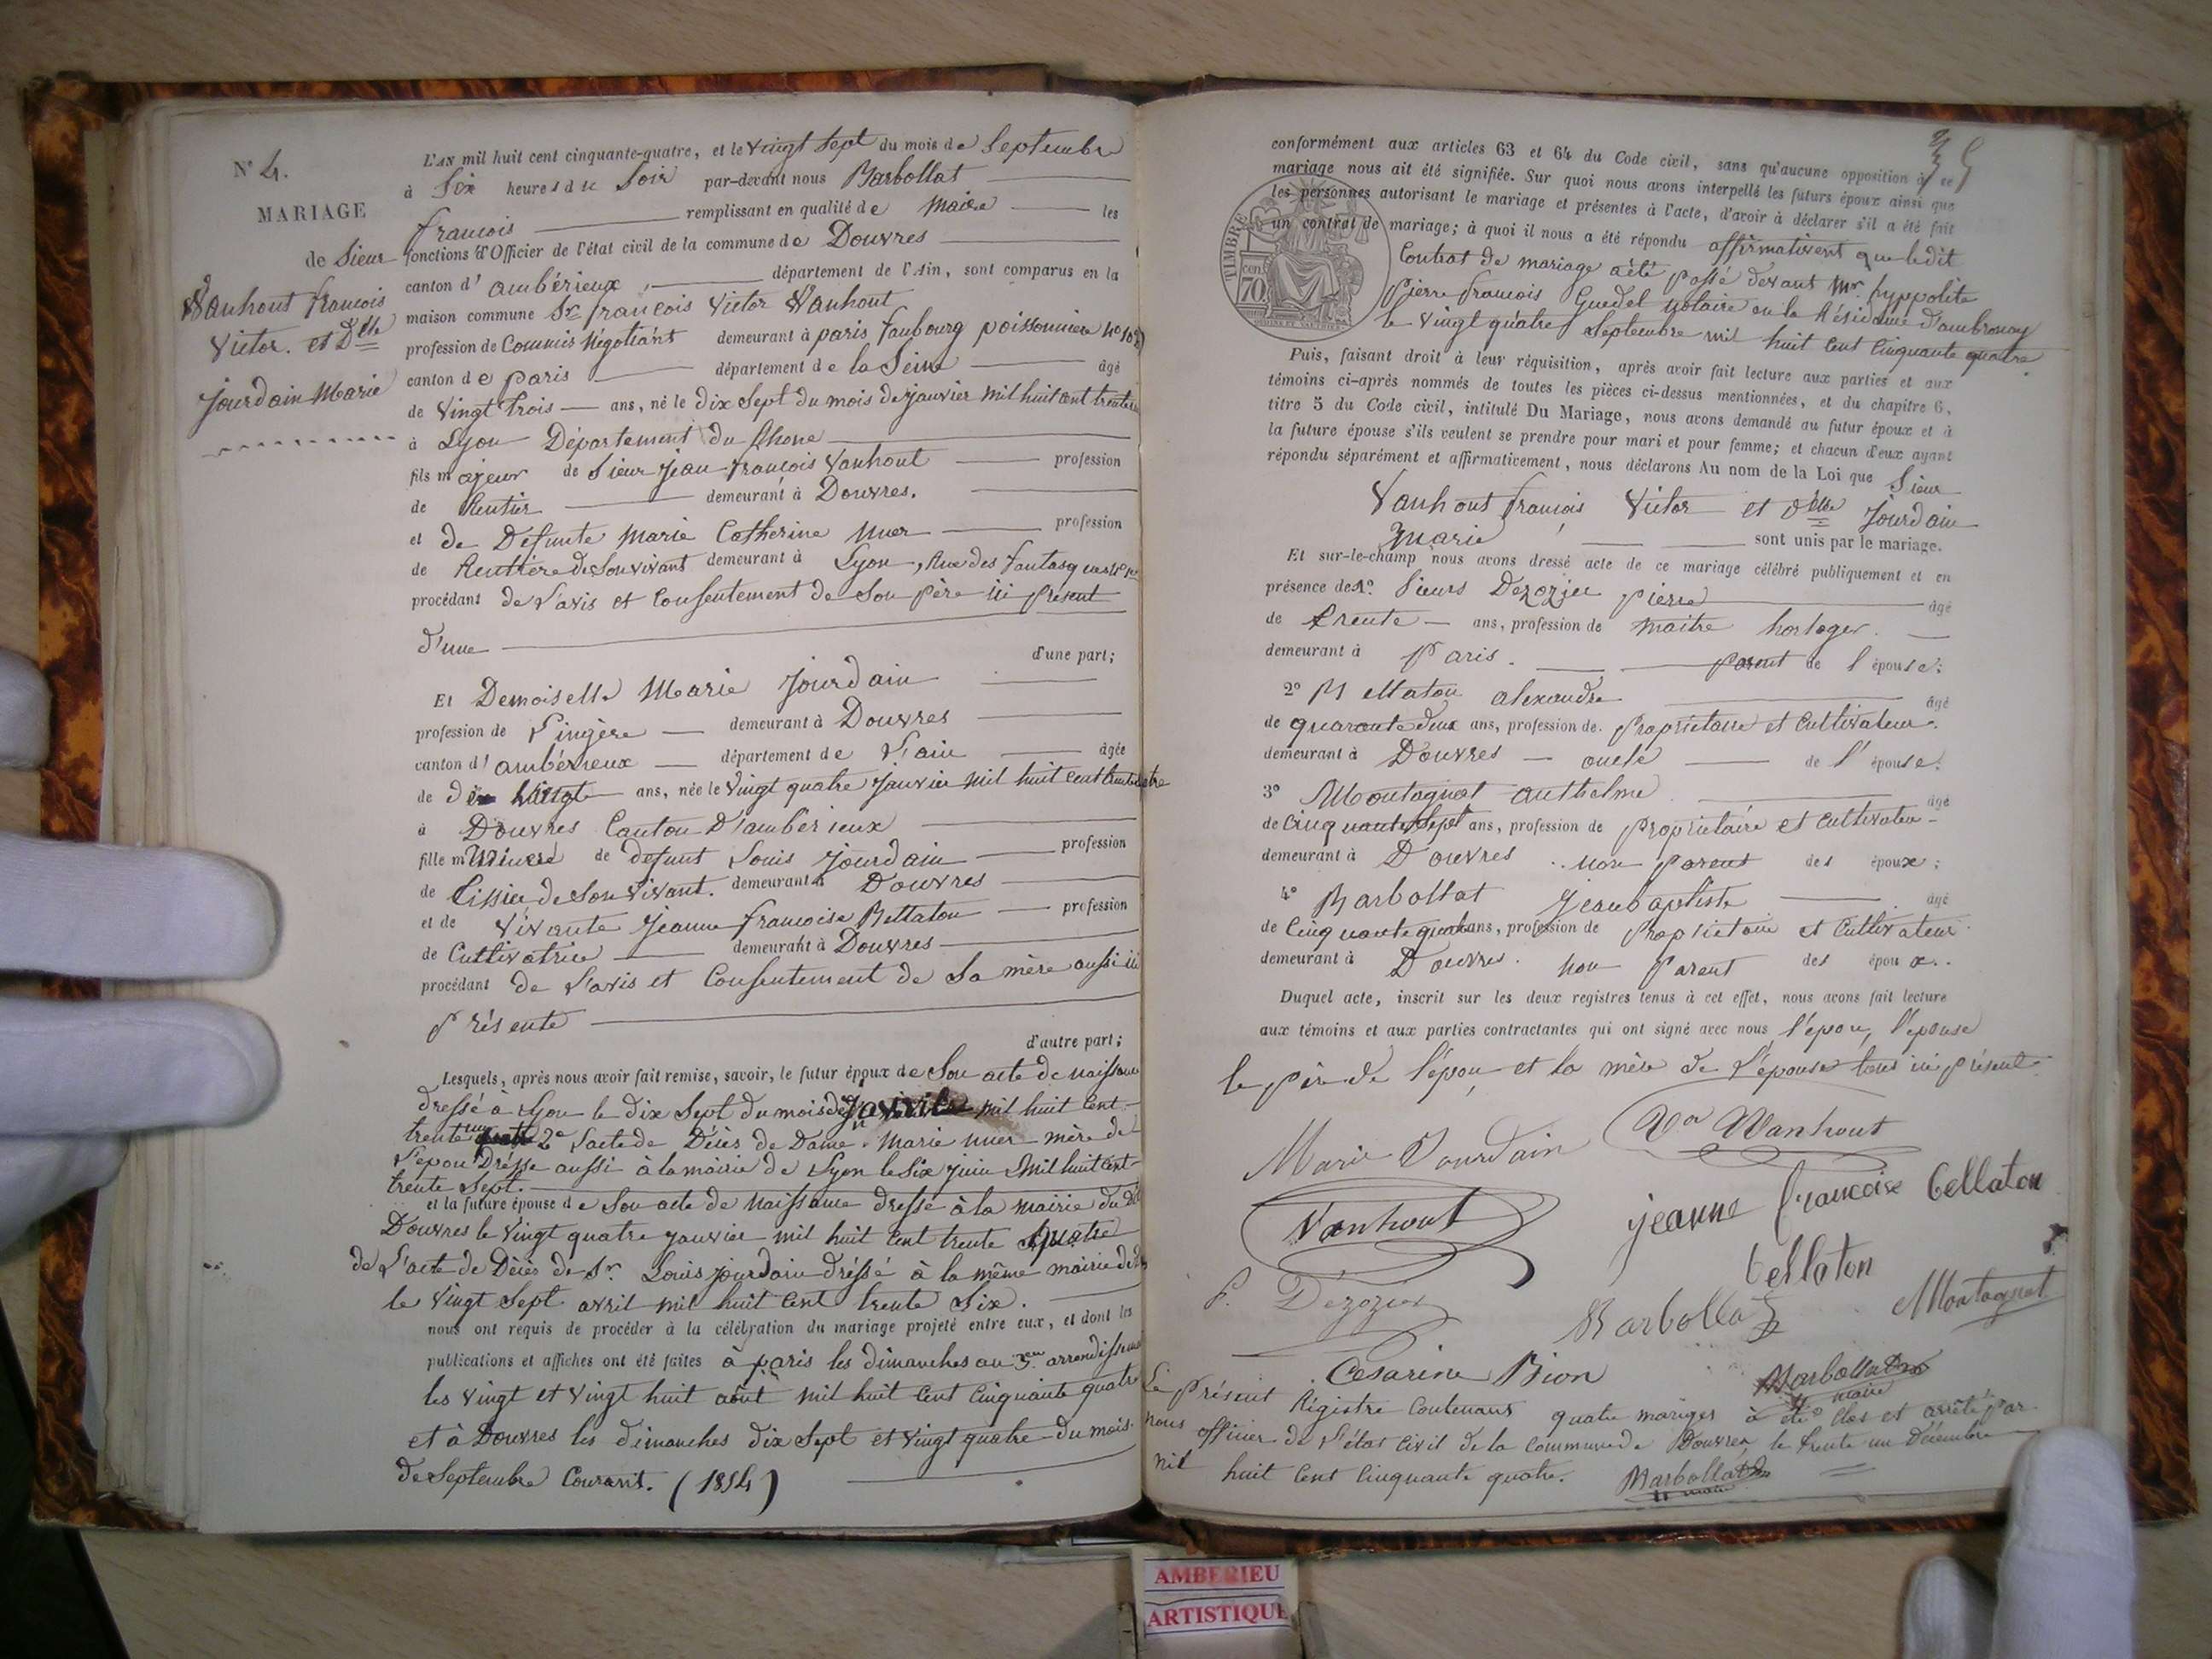 N° 4.
MARIAGE
de Sieur
Vanhout francois
Victor. et Dlle
Jourdain Marie
L'AN mil huit cent cinquante-quatre, et le Vingt Sept du mois de Septembre
à Six heures du Soir par-devant nous Barbollat
francois remplissant en qualité de Maire les
fonctions d'Officier de l'état civil de la commune de Douvres
canton d' ambérieux, département de l'Ain, sont comparus en la
maison commune Sr francois Victor Vanhout
profession de Commis Négotiant demeurant à paris faubourg poissonniere
canton de Paris département de la Seine âgé
de Vingt trois ans, né le dix Sept du mois de janvier mil huit cent trente
à Lyon Département du Rhone
fils majeur de Sieur Jean francois Vanhout profession
de Rentier demeurant à Douvres.
et de Defunte Marie Catherine Muer profession
de Rentiere de Son vivant demeurant à Lyon, Rue des fantasques
procédant de L'avis et Consentement de Son père ici présent
d'une
d'une part;
Et Demoiselle Marie Jourdain
profession de Lingère demeurant à Douvres
canton d' ambérieux département de L'ain âgée
de Vingt ans, née le Vingt quatre Janvier mil huit cent trente
à Douvres Canton D'ambérieux
fille mineure de defunt Louis Jourdain profession
de tissier de Son vivant. demeurant à Douvres
et de vivante Jeanne francoise Bellaton profession
de Cultivatrice demeurant à Douvres
procédant de L'avis et Consentement de Sa mère aussi ici
présente
d'autre part;
Lesquels, après nous avoir fait remise, savoir, le futur époux de Son acte de naissance
dressé à Lyon le dix Sept du mois de Janvier mil huit Cent
trente un 2° L'acte de Décès de Dame Marie Muer mère de
L'epou Dréssé aussi à la mairie de Lyon le Six juin mil huit Cent
trente Sept.
et la future épouse de Son acte de Naissance dressé à la Mairie du dit
Douvres le Vingt quatre janvier mil huit Cent trente quatre
de L'acte de Décès de Sr. Louis Jourdain dréssé à la même mairie de
le Vingt Sept avril mil huit Cent trente Six.
nous ont requis de procéder à la célébration du mariage projeté entre eux, et dont les
publications et affiches ont été faites à paris les dimanches au 3em arrondissement
les Vingt et Vingt huit août mil huit Cent Cinquante quatre
et à Douvres les dimanches dix Sept et Vingt quatre du mois
de Septembre Courant. (1854)
conformément aux articles 63 et 64 du Code civil, sans qu'aucune opposition à ce
mariage nous ait été signifiée. Sur quoi nous avons interpellé les futurs époux ainsi que
les personnes autorisant le mariage et présentes à l'acte, d'avoir à déclarer s'il a été fait
un contrat de mariage; à quoi il nous a été répondu affirmativement que ledit
TIMBRE
70
Contrat de mariage a été passé devant Mr. hyppolite
Pierre francois Guedel Notaire en la Résidence D'ambronay
le Vingt quatre Septembre mil huit Cent Cinquante quatre
Puis, faisant droit à leur réquisition, après avoir fait lecture aux parties et aux
témoins ci-après nommés de toutes les pièces ci-dessus mentionnées, et du chapitre 6,
titre 5 du Code civil, intitulé Du Mariage, nous avons demandé au futur époux et à
la future épouse s'ils veulent se prendre pour mari et pour femme; et chacun d'eux ayant
répondu séparément et affirmativement, nous déclarons Au nom de la Loi que Sieur
Vanhout francois Victor et Dlle Jourdain
Marie sont unis par le mariage.
Et sur-le-champ nous avons dressé acte de ce mariage célébré publiquement et en
présence de 1° Sieurs Dezozier pierre âgé
de trente ans, profession de Maitre horloger.
demeurant à Paris. parent de l'épouse;
2° Bellaton alexandre âgé
de quarante deux ans, profession de Propriétaire et Cultivateur.
demeurant à Douvres oncle de l'épouse.
3° Montagnat anthelme âgé
de Cinquante Sept ans, profession de propriétaire et Cultivateur
demeurant à Douvres non parent des époux;
4° Barbollat Jean baptiste âgé
de Cinquante quatre ans, profession de Propriétaire et Cultivateur.
demeurant à Douvres. non Parent des époux.
Duquel acte, inscrit sur les deux registres tenus à cet effet, nous avons fait lecture
aux témoins et aux parties contractantes qui ont signé avec nous l'épou, l'épouse
le père de l'épou et la mère de L'épouse tous ici présent
Marie Jourdain Vor Vanhout
Vanhout jeanne francoise bellaton
bellaton
P. Dézozier Barbollat Montagnat
Cesarine Bion Barbollat
maire
Le présent Régistre Contenant quatre mariges à été Clos et arrêté par
nous officier de L'état Civil de la Commune de Douvres le trente un Décembre
mil huit Cent Cinquante quatre. Barbollat
maire
AMBERIEU
ARTISTIQUE